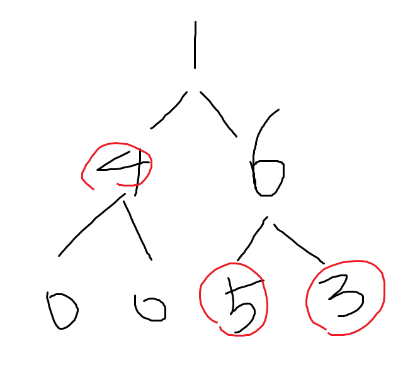 1
4 6
0 0 5 3